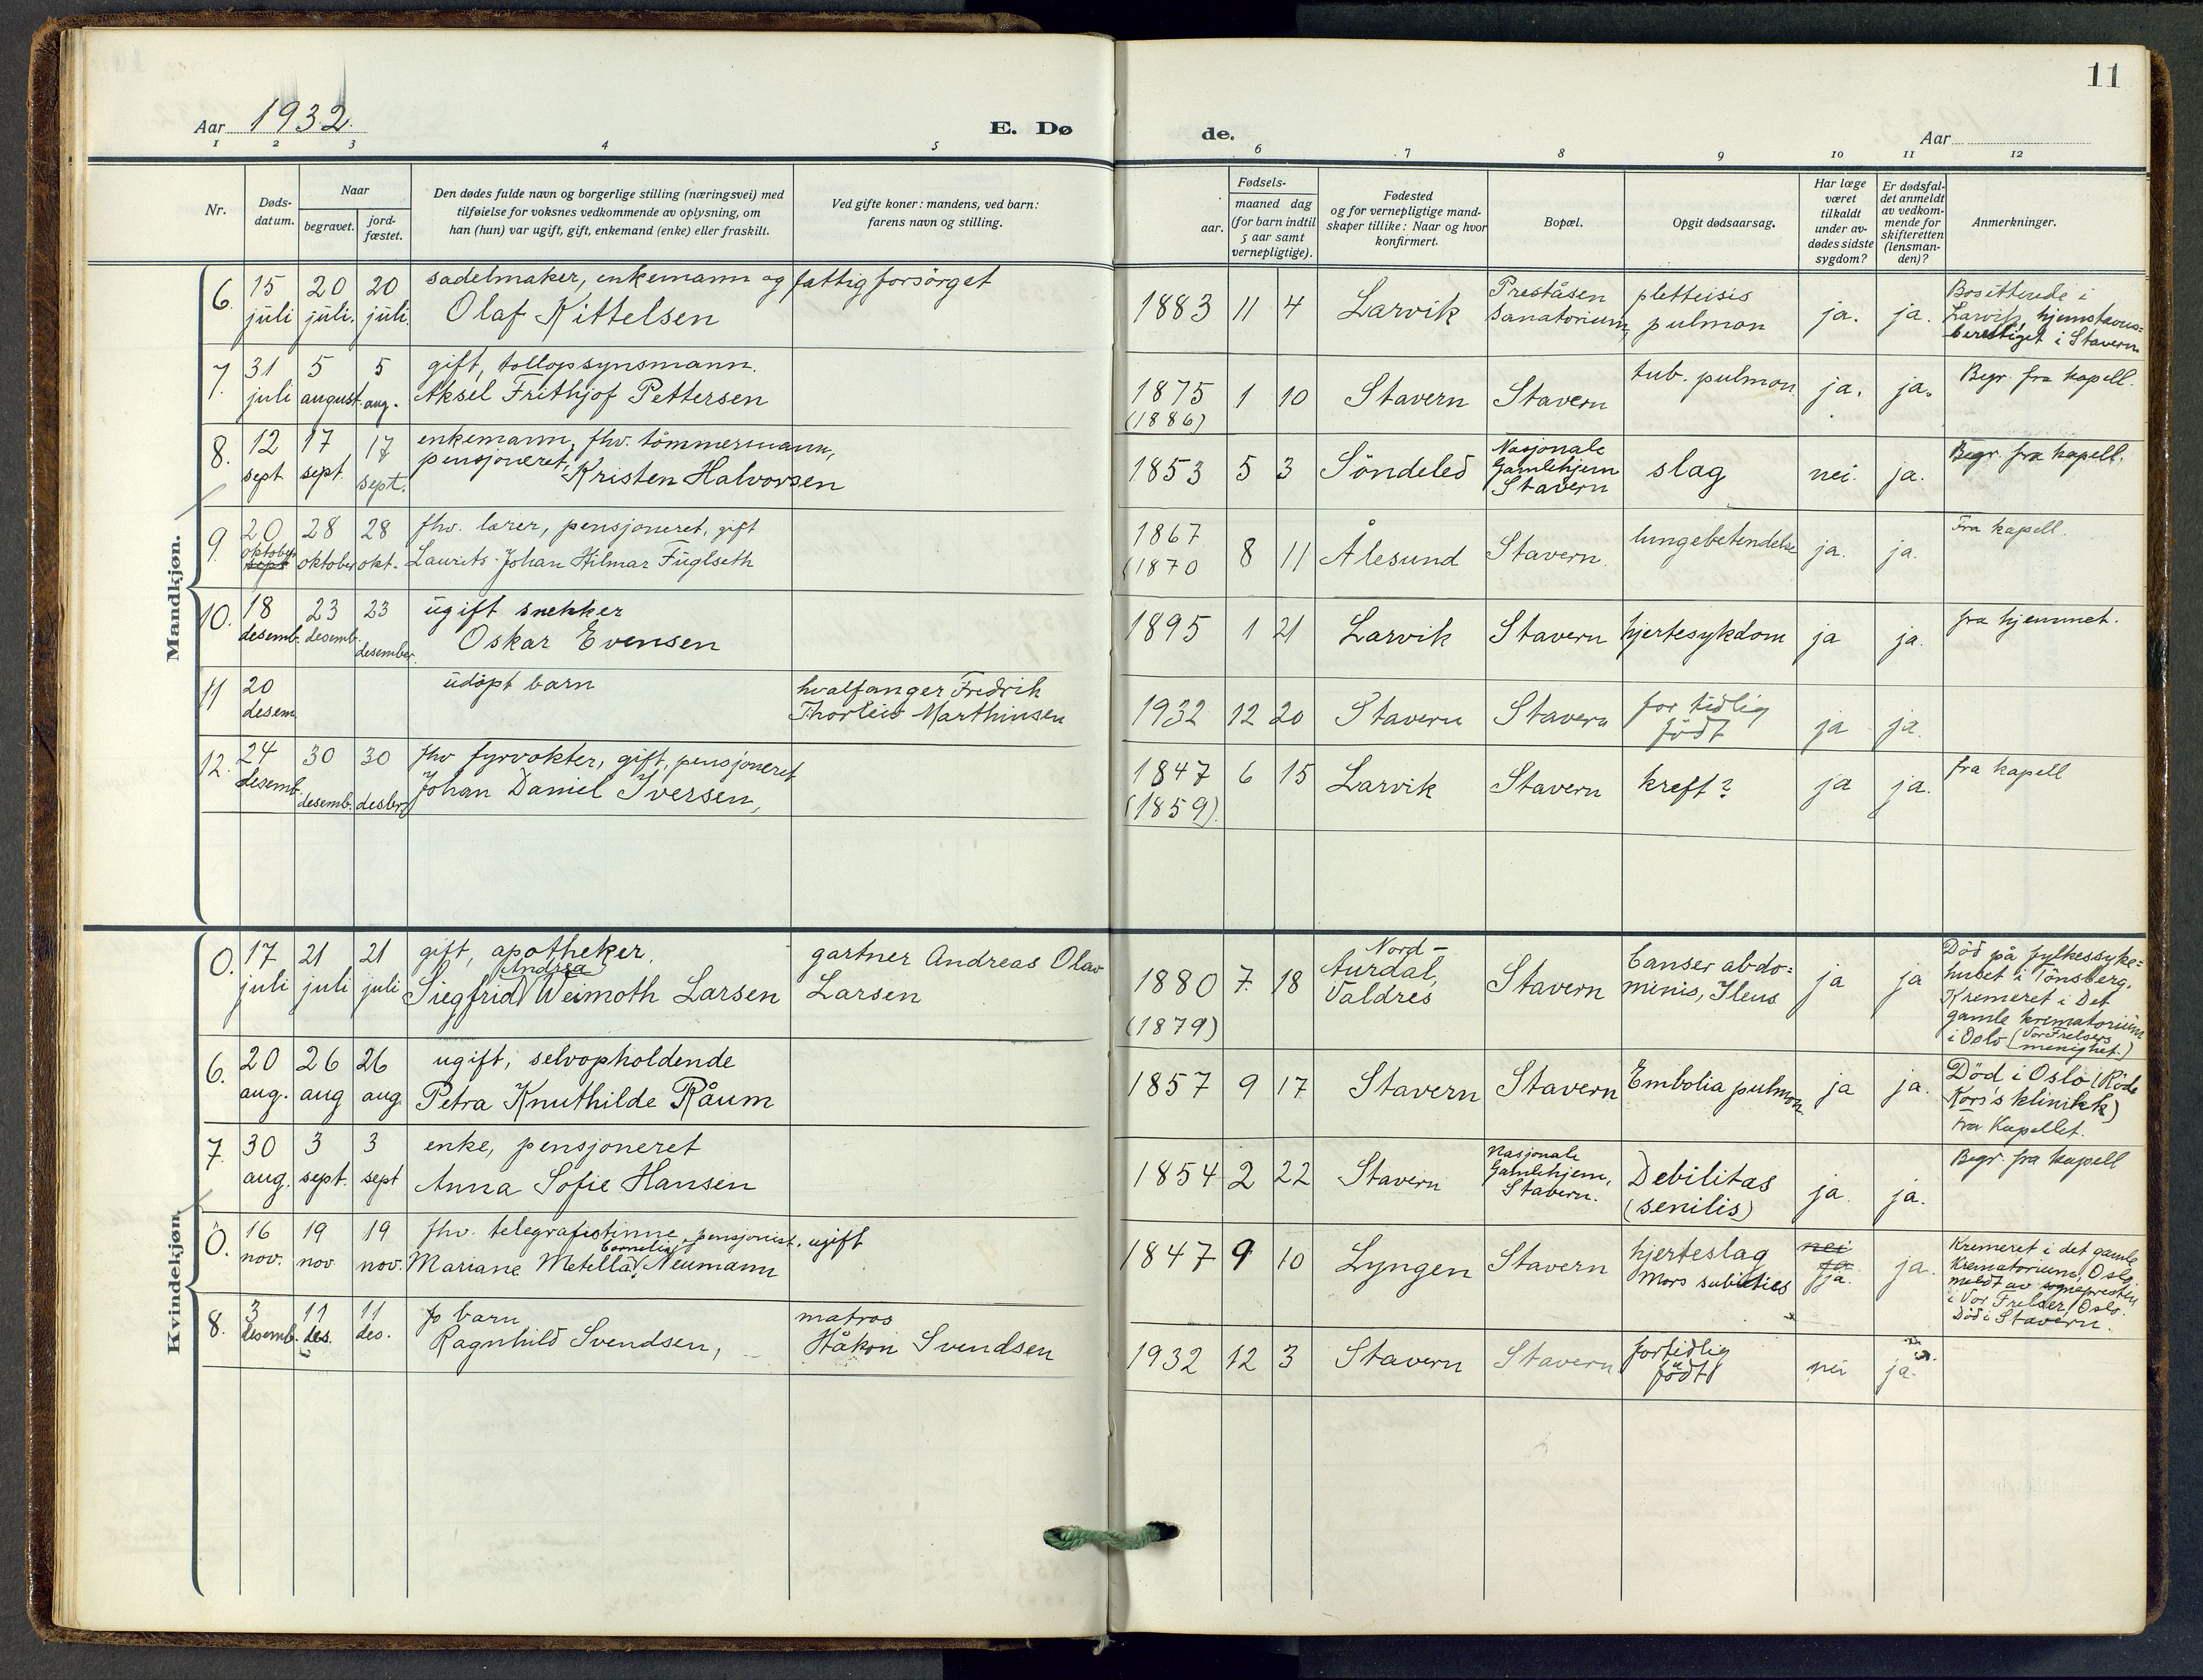 11
Aar 1932.
E. Dø
de.
Aar
1 2 3 4 5 6 7 8 9 10 11 12
Nr.
Døds-
datum.
Naar
begravet.
jord-
fæstet.
Den dødes fulde navn og borgerlige stilling (næringsvei) med
tilføielse for voksnes vedkommende av oplysning, om
han (hun) var ugift, gift, enkemand (enke) eller fraskilt.
Ved gifte koner: mandens, ved barn:
farens navn og stilling.
Fødsels-
aar.
maaned dag
(for barn indtil
5 aar samt
vernepligtige).
Fødested
og for vernepligtige mand-
skaper tillike: Naar og hvor
konfirmert.
Bopæl.
Opgit dødsaarsag.
Har læge
været
tilkaldt
under av-
dødes sidste
sygdom?
Er dødsfal-
det anmeldt
av vedkom-
mende for
skifteretten
(lensman-
den)?
Anmerkninger.
Mandkjøn.
6. 15 juli 20 juli. 20 juli.
sadelmaker, enkemann og fattigforsörget
Olaf Kittelsen
1883 11 4 Larvik
Preståsen
Sanatorium,
pulmon
ja. ja.
Bosittende i
Larvik, hjemstavns=
berettiget i Stavern
7. 31 juli 5 august. 5 aug.
gift, tollopsynsmann.
Aksel Frithjof Pettersen
1875
(1886)
1 10 Stavern Stavern
tub. pulmon.
ja. ja.
Begr. fra kapell.
8. 12 sept 17 sept. 17 sept.
enkemann, fhv. tömmermann,
pensjoneret, Kristen Halvorsen
1853 5 3 Söndeled
Nasjonale
Gamlehjem
Stavern
slag nei. ja.
Begr. fra kapell.
9. 20 oktober sept 28 oktober 28 okt.
fhv. lærer, pensjoneret, gift
Laurits Johan Hilmar Fuglseth
1867
(1870
8 11 Ålesund Stavern.
lungebetendelse
ja. ja.
Fra kapell.
10. 18 desemb. 23 desemb. 23 desember.
ugift snekker
Oskar Evensen
1895 1 21 Larvik Stavern hjertesykdom ja ja.
fra hjemmet.
11 20 desem.
udöpt barn
hvalfanger Fredrik
Thorleif Marthinsen
1932 12 20 Stavern Stavern
for tidlig
födt
ja ja.
12. 24 desemb. 30 desemb. 30 desbr.
fhv fyrvokter, gift, pensjoneret
Johan Daniel Iversen,
1847
(1859).
6 15 Larvik Stavern kreft? ja ja.
fra kapell
Kvindekjøn.
0. 17 juli 21 juli 21 juli
gift, apotheker.
Andrea
Siegfrid Weimoth Larsen
gartner Andreas Olav
Larsen
1880
(1879)
7. 18
Nord-
Aurdal,
Valdres
Stavern
Canser abdo=
minis, Ileus
ja ja
Död på fylkessyke=
huset i Tönsberg.
Kremeret i Det
gamle krematorium
i Oslo (Vor Frelsers
menighet.)
6. 20 aug. 26 aug 26 aug.
ugift, selvopholdende
Petra Knuthilde Råum
1857 9 17 Stavern Stavern Embolia pulmon ja ja.
Död i Oslo (Röde
Kors's klinikk)
Fra Kapellet.
7. 30 aug. 3 sept. 3 sept
enke, pensjoneret
Anna Sofie Hansen
1854 2 22 Stavern
Nasjonale
Gamlehjem,
Stavern.
Debilitas
(senilis)
ja. ja.
Begr. fra kapell
0. 16 nov. 19 nov. 19 nov.
fhv. telegrafistinne, pensjonist, ugift
Cornelia
Mariane Metella Neumann
1847 9 10 Lyngen Stavern
hjerteslag
Mors
nei
ja
ja.
ja.
Kremeret i det gamle
Krematorium, Oslo.
meldt av sognepresten
i Vor Frelser, Oslo.
Död i Stavern.
8. 3 desemb. 11 des. 11 des.
barn
Ragnhild Svendsen,
matros
Håkon Svendsen
1932 12 3 Stavern Stavern
fortidlig
födt
nei ja.